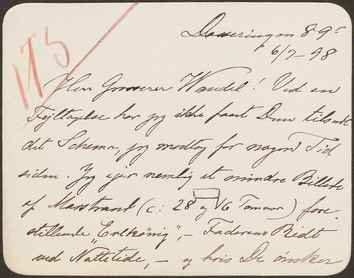 175
6/7-98
Herr Grosserer Wandel! Ved en
Fejltagelse har jeg ikke faaet Dem tilsendt
det Schema, jeg modtog for nogen Tid
siden. Jeg ejer nemlig et mindre Billede
af Marstrand (c: 28 og 16 Tommer) fore-
stillende "Erlkönig", - Faderens Ridt
ved Nattetide, - og hvis De ønsker